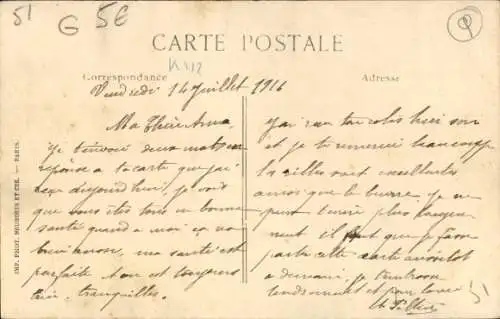 51
G 5E
CARTE POSTALE
Correspondance
Adresse
Vendredi 14 Juillet 1916
Ma Chère Anna
Je t'envoie deux mots en
réponse a ta carte que j'ai
aujourd'hui, je vois
que vous êtes tous en bonne
santé quand a moi ça va
bien aussi, ma santé est
parfaite tout est toujours
très tranquilles.
J'ai reçu ton colis hier soir
et je te remercie beaucoup
les sont excellentes
ainsi que le beurre, je ne
peux t'écrire plus longue
ment il faut que je fasse
partir cette carte aussitôt
a demain, je t'embrasse
tendrement et pour la vie
IMP. PHOT. ET CIE. — PARIS.
51